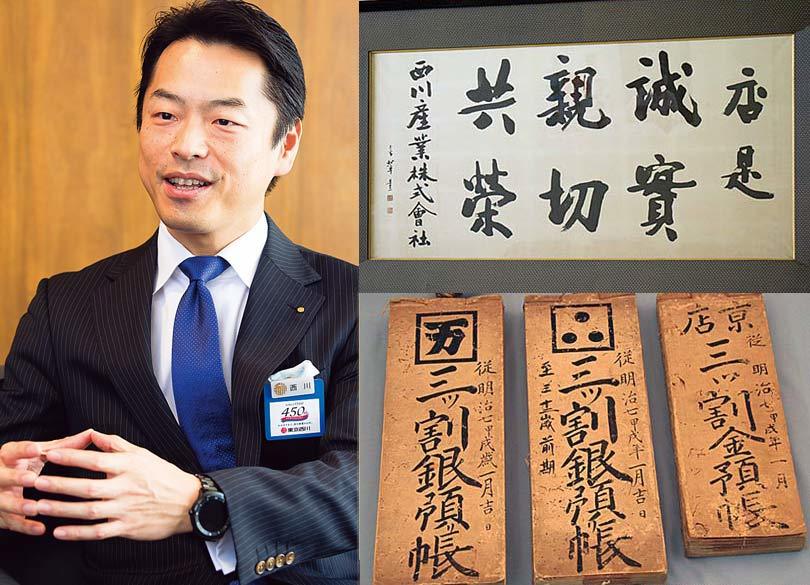 西川
450
東京西川
店是
誠實
親切
共榮
西川産業株式會社
万
従明治七甲戌歳一月吉日
三ッ割銀預帳
従明治七甲戌年一月吉日
至三十三歳前期
三ッ割銀預帳
京店
従明治七甲戌年一月
三ッ割金預帳